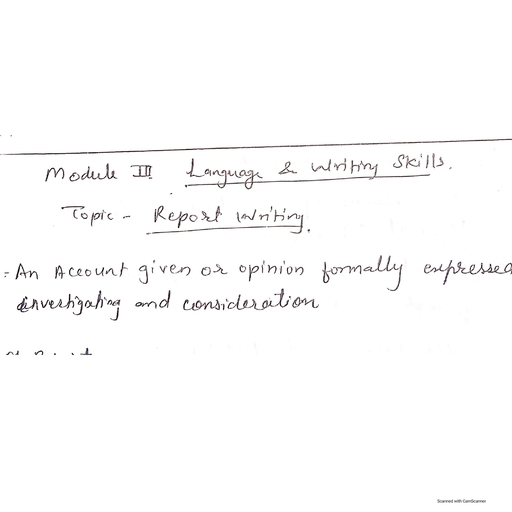 Module III Language & Writing Skills.
Topic - Report Writing.
:- An Account given or opinion formally expressed
investigating and consideration
Scanned with CamScanner